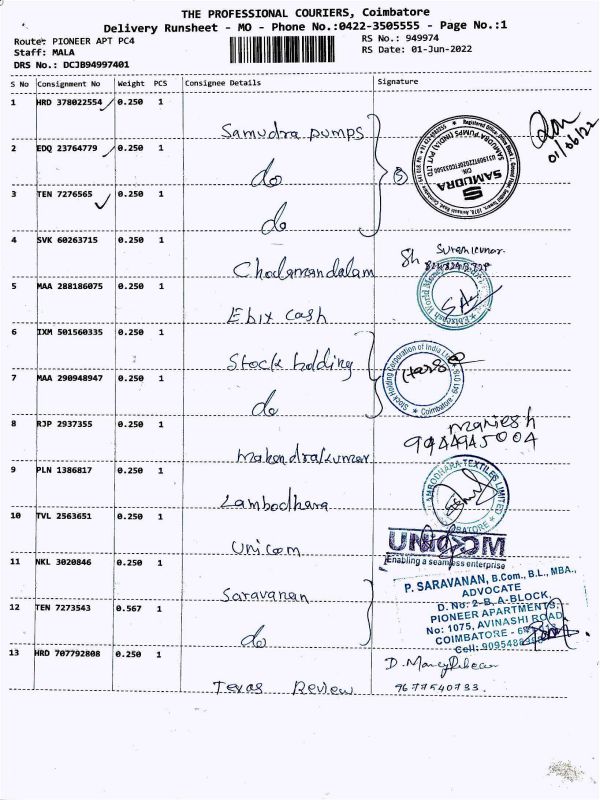 THE PROFESSIONAL COURIERS, Coimbatore
Delivery Runsheet - MO - Phone No.:0422-3505555 - Page No.:1
Route: PIONEER APT PC4
RS No.: 949974
Staff: MALA
RS Date: 01-Jun-2022
DRS No.: DCJB94997401
S No Consignment No Weight PCS Consignee Details Signature
1 HRD 378022554 0.250 1 Samudra pumps
01/06/22
SAMUDRA
2 EDQ 23764779 0.250 1 do
3
3 TEN 7276565 0.250 1 do
4 SVK 60263715 0.250 1 Cholamandalam
Sureshkumar
5 MAA 288186075 0.250 1 Ebix Cash
6 IXM 501560335 0.250 1 Stock holding
Stock Holding Corporation of India Ltd
Coimbatore
7 MAA 290948947 0.250 1 do
8 RJP 2937355 0.250 1 Mahendrakumar
Maniesh
9944945004
9 PLN 1386817 0.250 1 Lambodhara
LAMBODHARA TEXTILES LIMITED
10 TVL 2563651 0.250 1 Unicom
UNICOM
Enabling a seamless enterprise
11 NKL 3020846 0.250 1 Saravanan
P. SARAVANAN, B.Com., B.L., MBA.,
ADVOCATE
D. No: 2-B, A-BLOCK,
PIONEER APARTMENTS,
No: 1075, AVINASHI ROAD,
COIMBATORE -
Cell:
12 TEN 7273543 0.567 1 do
13 HRD 707792808 0.250 1 Texas Review
9677540733.